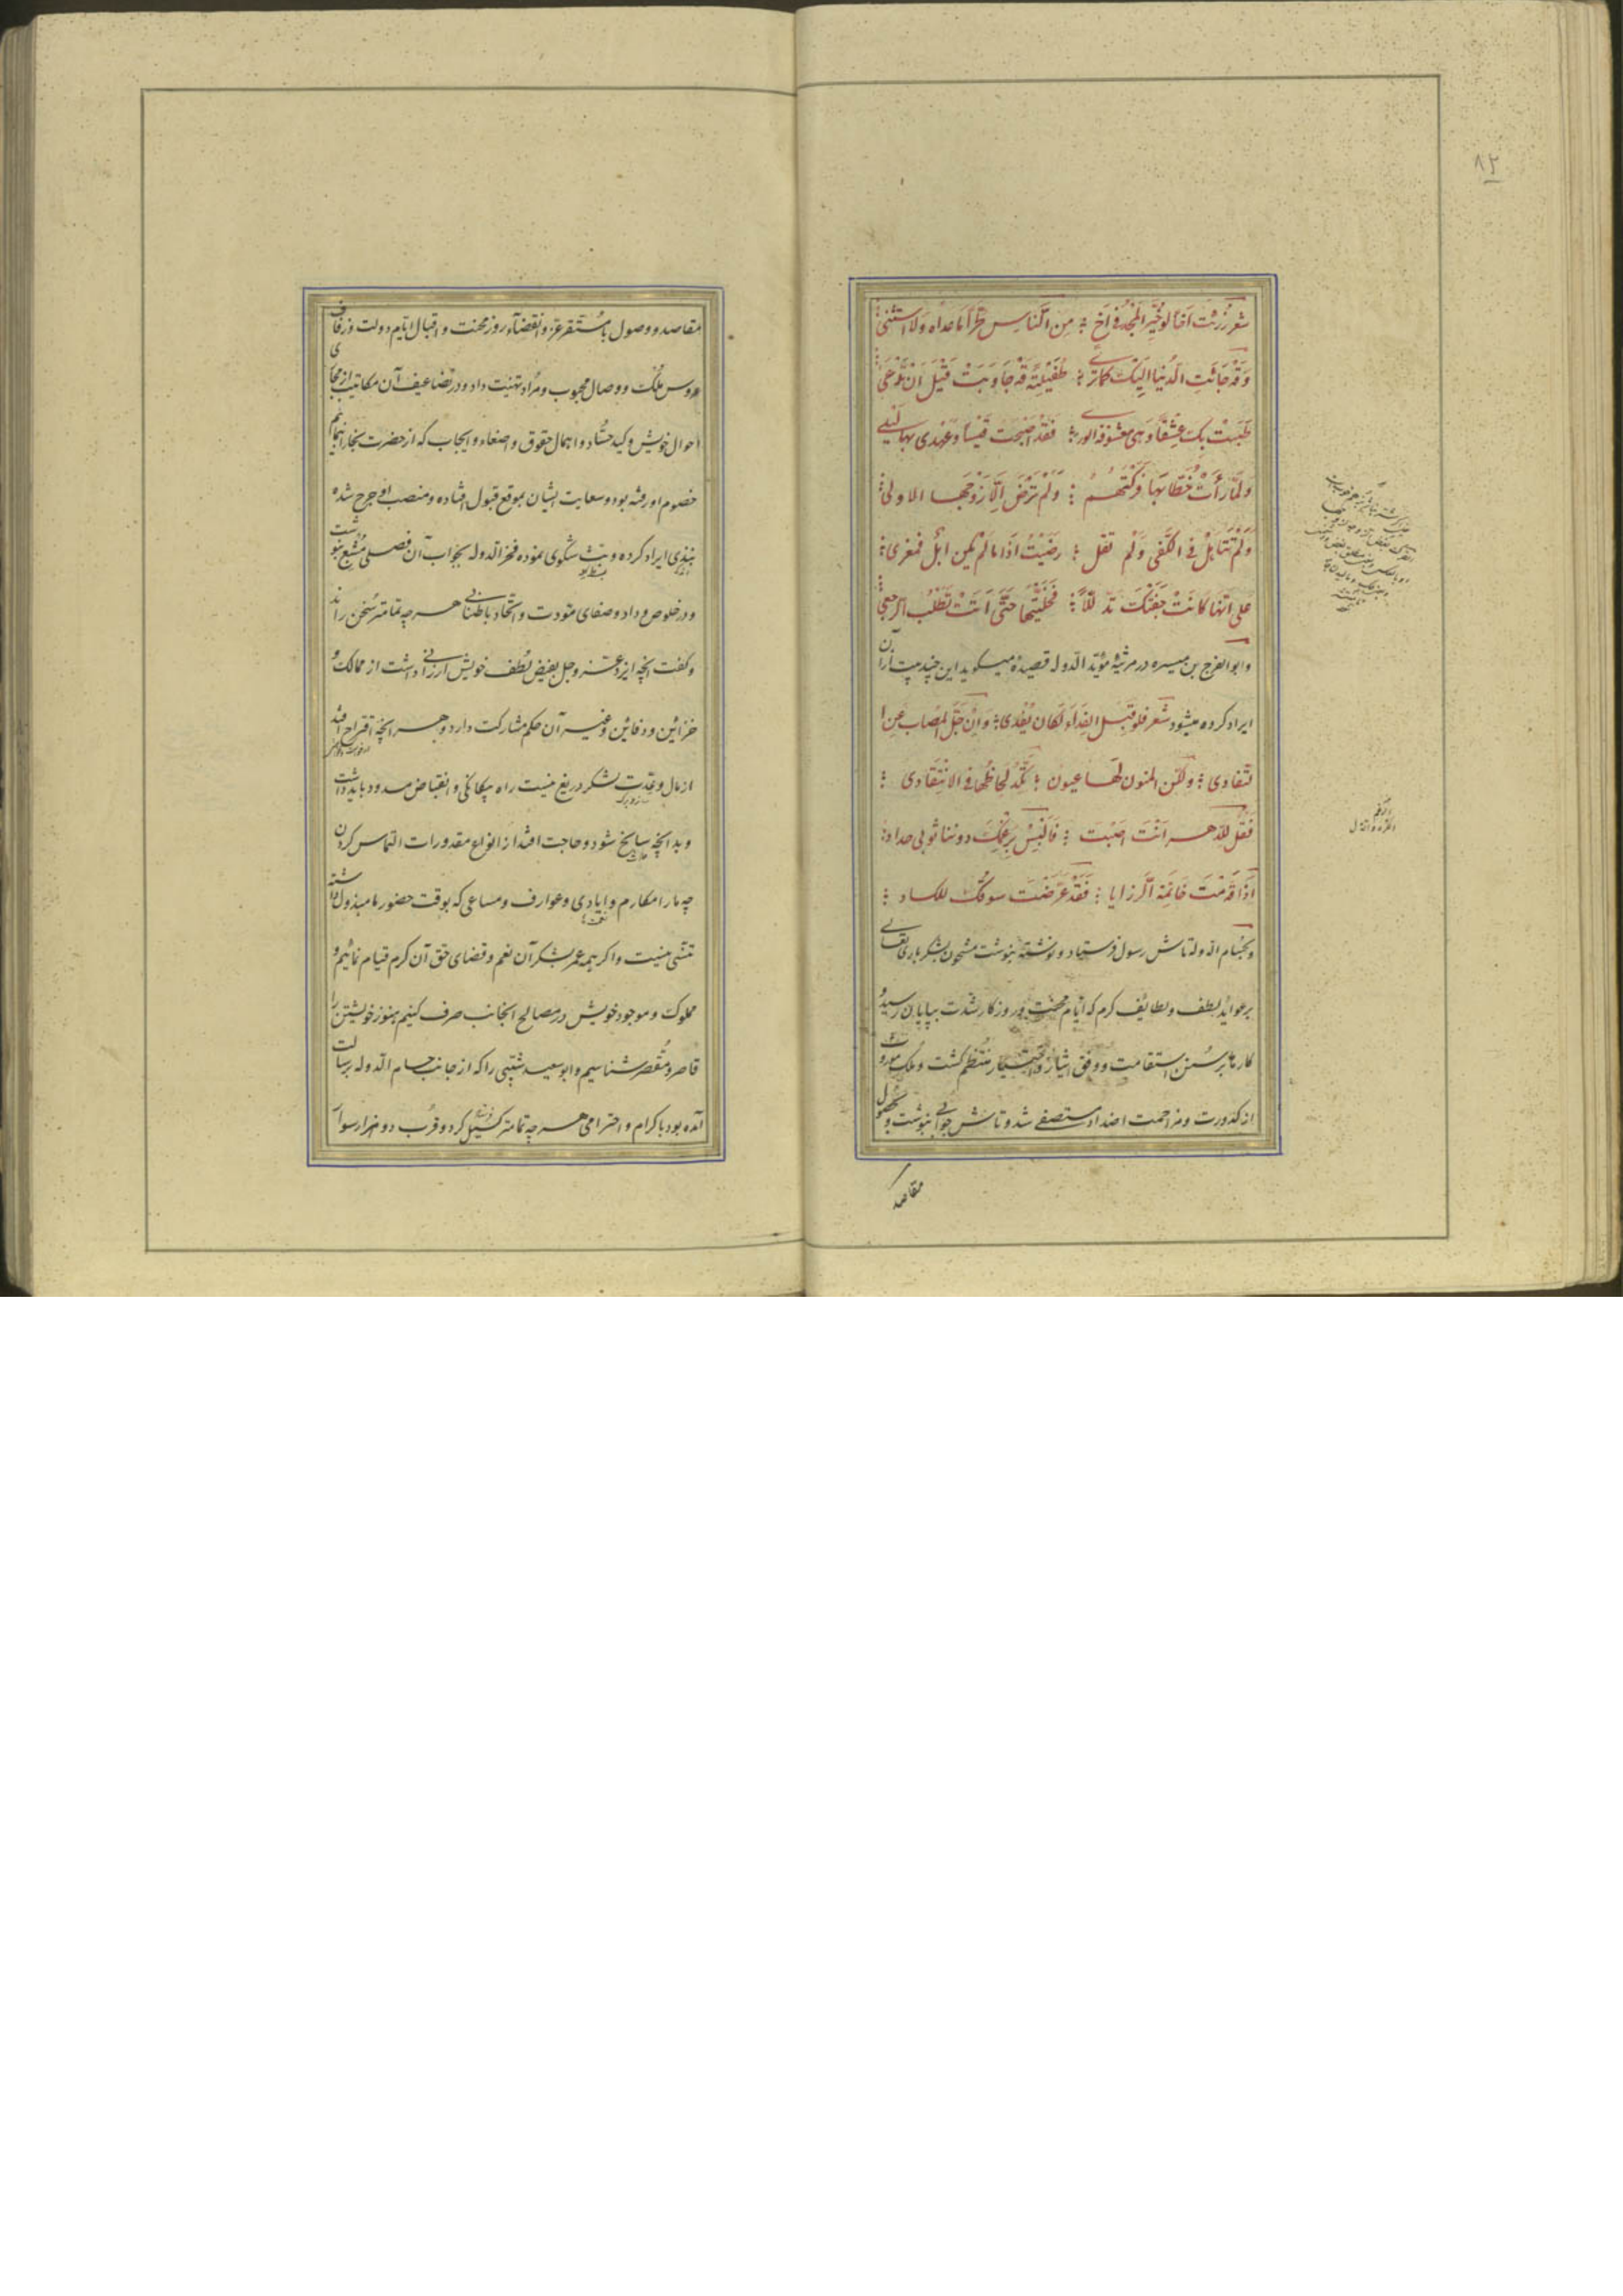 ۸۲
شعر رُزِئتَ اَخاً لو خُیِّرَ المَجدُ فی اَخٍ ؛ مِنَ النّاسِ طُرّاً ما عداه ولا استثنی
وَقَد جائتِ الدُنیا الیکَ کما تری ؛ طُفَیلیّة قد جاوبت قبل ان تدعی
طبت بک عشقاً وهی معشوقة الوری ؛ فقد اصبحت قیساً وعهدی بها لیلی
ولمّا رأت خطّابها ترکتهم ؛ ولم ترض الّا زوجها الاولی
وَلَم تتساهل فی الکفی وَلم تقل ؛ رضیتُ اذا ما لم یکن ابل فمعزی
علی انّها کانت جفتک تدلّلاً ؛ فخلّیتها حتّی اَتت تطلب الرجعی
وابوالفرج بن میسره در مرثیهٔ مؤید الدوله قصیدهٔ میگوید این چند بیت از آن
ایراد کرده میشود شعر فلو قبل الفداء لکان یُفدی ؛ وان جلّ المصاب عن ا
لتفادی ؛ ولکن المنون لها عیون ؛ تکدّ لحاظها فی الانتقادی ؛
فقل للدهر انت اصبت ؛ فالبس برغمک دوننا ثوبی حداد ؛
اذا قدمت خاتمة الرزایا ؛ فقد عرضت سوقک للکساد ؛
وبحسام الدوله تاش رسول فرستاد و نوشتهٔ بنوشت مشحون بشکر باری تعالی
بر عواید لطف و لطائف کرم که ایّام محنت و روزگار شدت بپایان رسید و
کار ما بر سنن استقامت و وفق ایثار و اختیار منتظم گشت و ملک موروث
از کدورت و مزاحمت اضداد مستصفی شد و تاش جوابی بنوشت و بحصول
مقاصد
مقاصد و وصول بامستقر عز و انقضاء روز محنت و اقبال ایام دولت و زفاف
عروس ملک و وصال محبوب و مراد تهنیت داد و در تضاعیف آن مکاتیب از مجاری
احوال خویش و کید حسّاد و اهمال حقوق و اصغاء و ایجاب که از حضرت بخارا بتمام
خصوم او رفته بود و سعایت ایشان بموقع قبول افتاده و منصب او جرح شده
نبذی ایراد کرده و بثّ شکوی نموده فخر الدوله بجواب آن فصلی مشبع بنوشت
و در خلوص و داد و صفای مودت و اتحاد باطنابی هر چه تمامتر سخن راند
و گفت آنچه ایزد عز و جل بفیض لطف خویش ارزانی داشت از ممالک و
خزائن و دفائن و غیر آن حکم مشارکت دارد و هر آنچه اقتراح افتد
از مال و عدت لشکر دریغ نیست راه بیگانگی و انقباض مسدود باید داشت
و بدانچه سانح شود و حاجت افتد از انواع مقدورات التماس کردن
چه ما را مکارم و ایادی و عوارف و مساعی که بوقت حضور ما مبذول داشته
منسی نیست و اگر همه عمر بشکر آن نعم و قضای حق آن کرم قیام نمائیم و
مملوک و موجود خویش در مصالح انجانب صرف کنیم هنوز خویشتن را
قاصر و مقصر شناسیم و ابوسعید شیبی را که از جانب حسام الدوله برسالت
آمده بود با کرام و احترامی هر چه تمامتر گسیل کرد و قرب دو هزار سوار